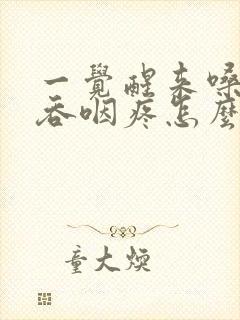 一覺醒来嗓
吞咽疼怎麼
童大焕